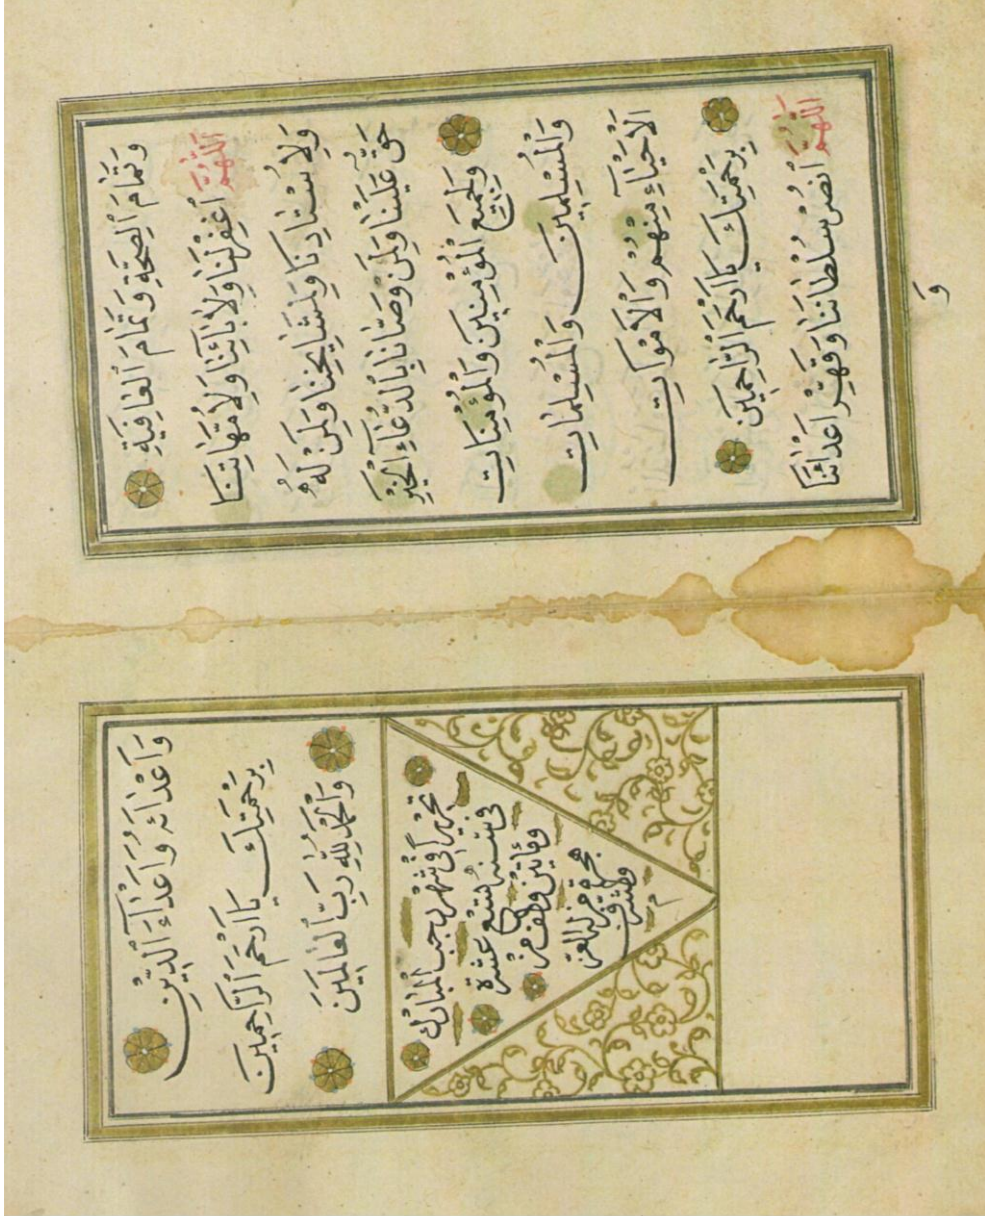 وَتَمَامَ الصِّحَّةِ وَتَمَامَ الْعَافِيَةِ
اَللّٰهُمَّ اغْفِرْ لَنَا وَلِاٰبَائِنَا وَلِاُمَّهَاتِنَا
وَلِاُسْتَادِنَا وَلِمَشَايِخِنَا وَلِمَنْ لَهُ
حَقٌّ عَلَيْنَا وَلِمَنْ وَصَّانَا بِالدُّعَاءِ الْخَيْرِ
وَلِجَمِيعِ الْمُؤْمِنِينَ وَالْمُؤْمِنَاتِ
وَالْمُسْلِمِينَ وَالْمُسْلِمَاتِ
اَلْاَحْيَاءِ مِنْهُمْ وَالْاَمْوَاتِ
بِرَحْمَتِكَ يَا اَرْحَمَ الرَّاحِمِينَ
اَللّٰهُمَّ انْصُرْ سُلْطَانَنَا وَقَهِّرْ اَعْدَائَنَا
وَ
وَاَعْدَائِهِ وَاَعْدَاءَ الدِّينِ
بِرَحْمَتِكَ يَا اَرْحَمَ الرَّاحِمِينَ
وَالْحَمْدُ لِلّٰهِ رَبِّ الْعَالَمِينَ
تحريرا في شهر رجب المبارك
في سنة تسع عشرة
ومأتين والف من
هجرة من له العز
والشرف
م